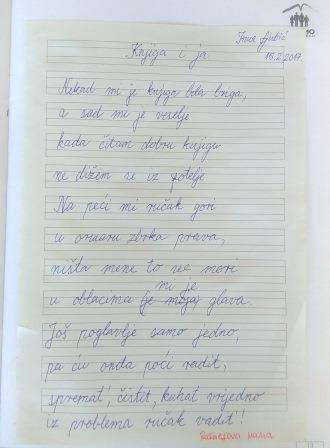 Knjiga i ja
15.2.2017.
Nekad mi je knjiga bila briga,
a sad mi je veselje
kada čitam dobru knjigu
ne dižem se iz fotelje
Na peći mi ručak gori
u ormaru zbrka prava,
ništa mene to ne mori
mi je
u oblacima (je moja) glava.
Još poglavlje samo jedno,
pa ću onda poći radit,
spremat', čistit, kuhat vrijedno
iz problema ručak vadit'!